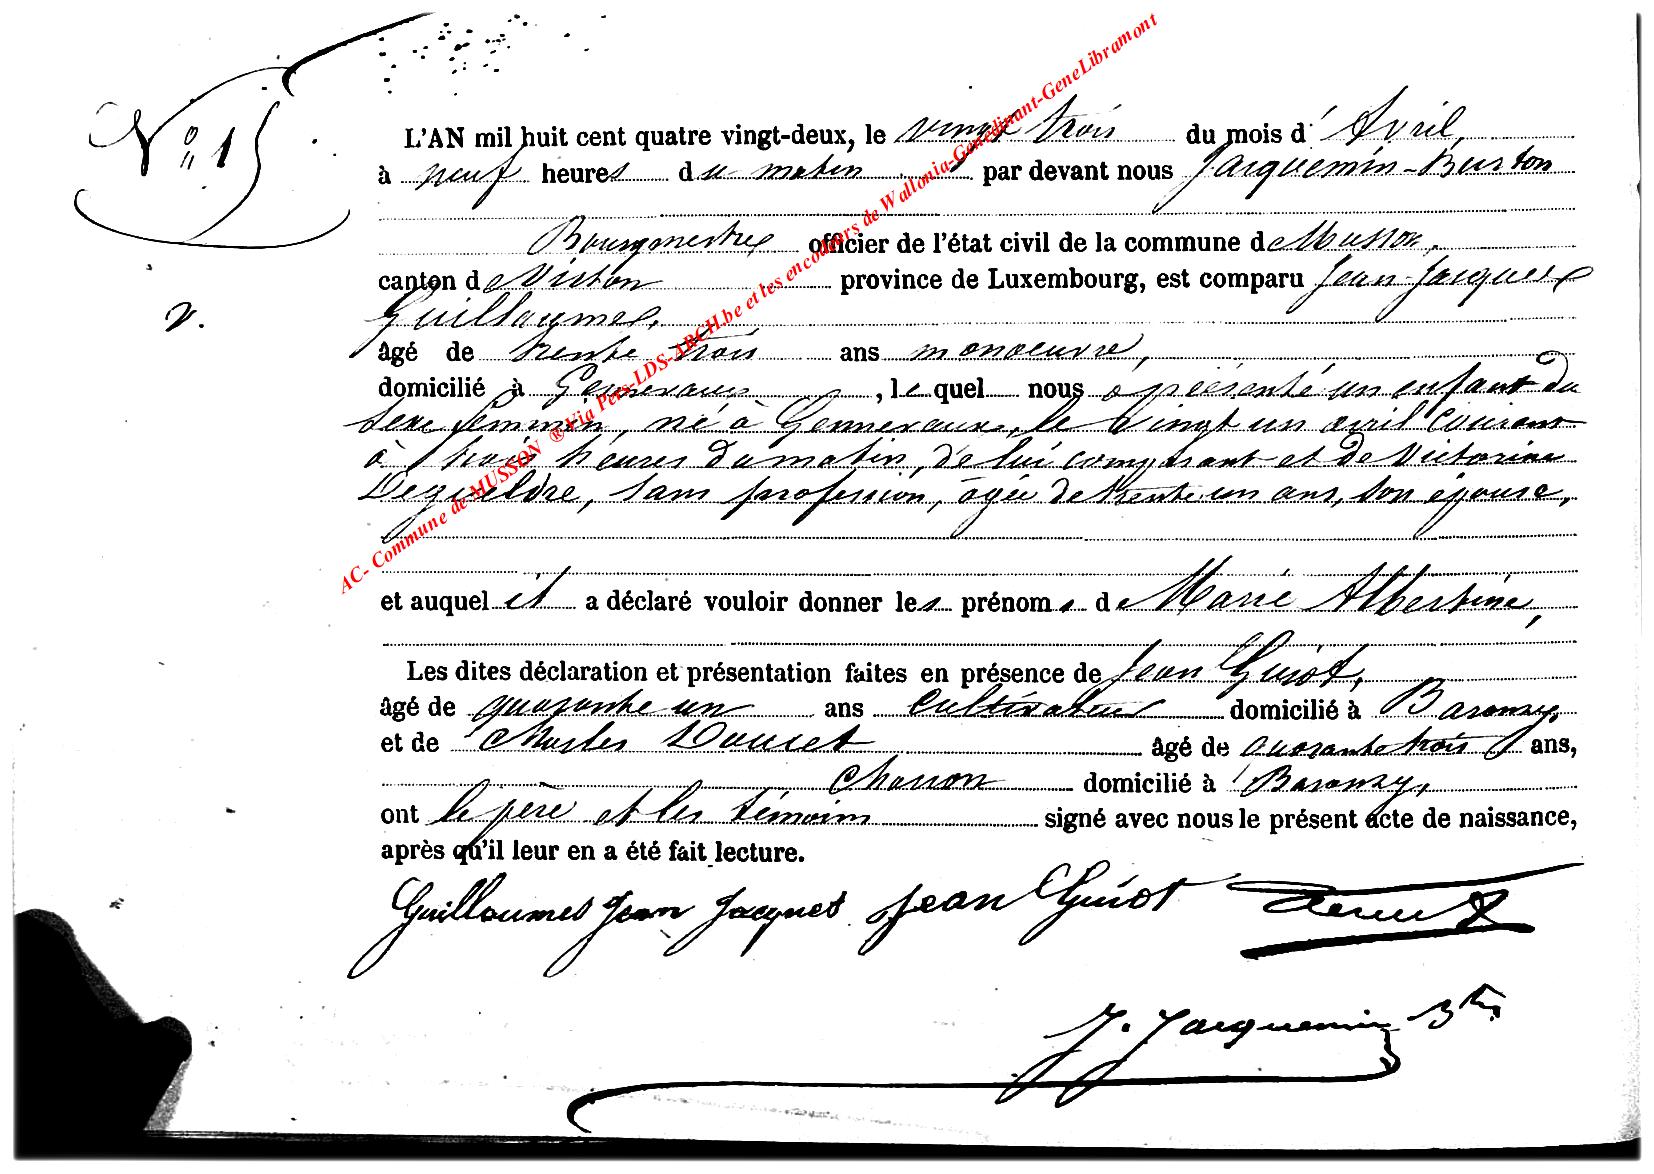 N° 15
L'AN mil huit cent quatre vingt-deux, le vingt trois du mois d' Avril,
à neuf heures du matin par devant nous Jacquemin-Burton
Bourgmestre officier de l'état civil de la commune de Musson,
canton de Virton province de Luxembourg, est comparu Jean-Jacques
v.
Guillaumes,
âgé de trente trois ans manoeuvre,
domicilié à Gennevaux, lequel nous a présenté un enfant du
sexe féminin, né à Gennevaux, le vingt un avril courant
à trois heures du matin, de lui comparant et de Victorine
sans profession, âgée de trente un ans, son épouse,
et auquel il a déclaré vouloir donner les prénoms de Marie Albertine,
Les dites déclaration et présentation faites en présence de Jean Guiot,
âgé de quarante un ans cultivateur domicilié à Baranzy
et de Charles Doucet âgé de quarante trois ans,
charron domicilié à Baranzy,
ont le père et les témoins signé avec nous le présent acte de naissance,
après qu'il leur en a été fait lecture.
Guillaumes Jean Jacques Jean Guiot
J. Jacquemin Btn
AC- Commune de MUSSON ® Via Pers-LDS-ARCH.be et les encodeurs de Wallonia-Genedinant-GeneLibramont